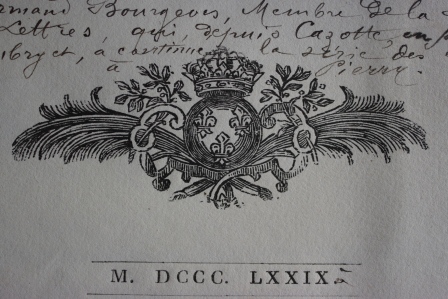 Bourgeois, Membre De la
Lettres, qui, depuis Cazotte,
à continué la série des
à Pierry.
M. DCCC. LXXIX